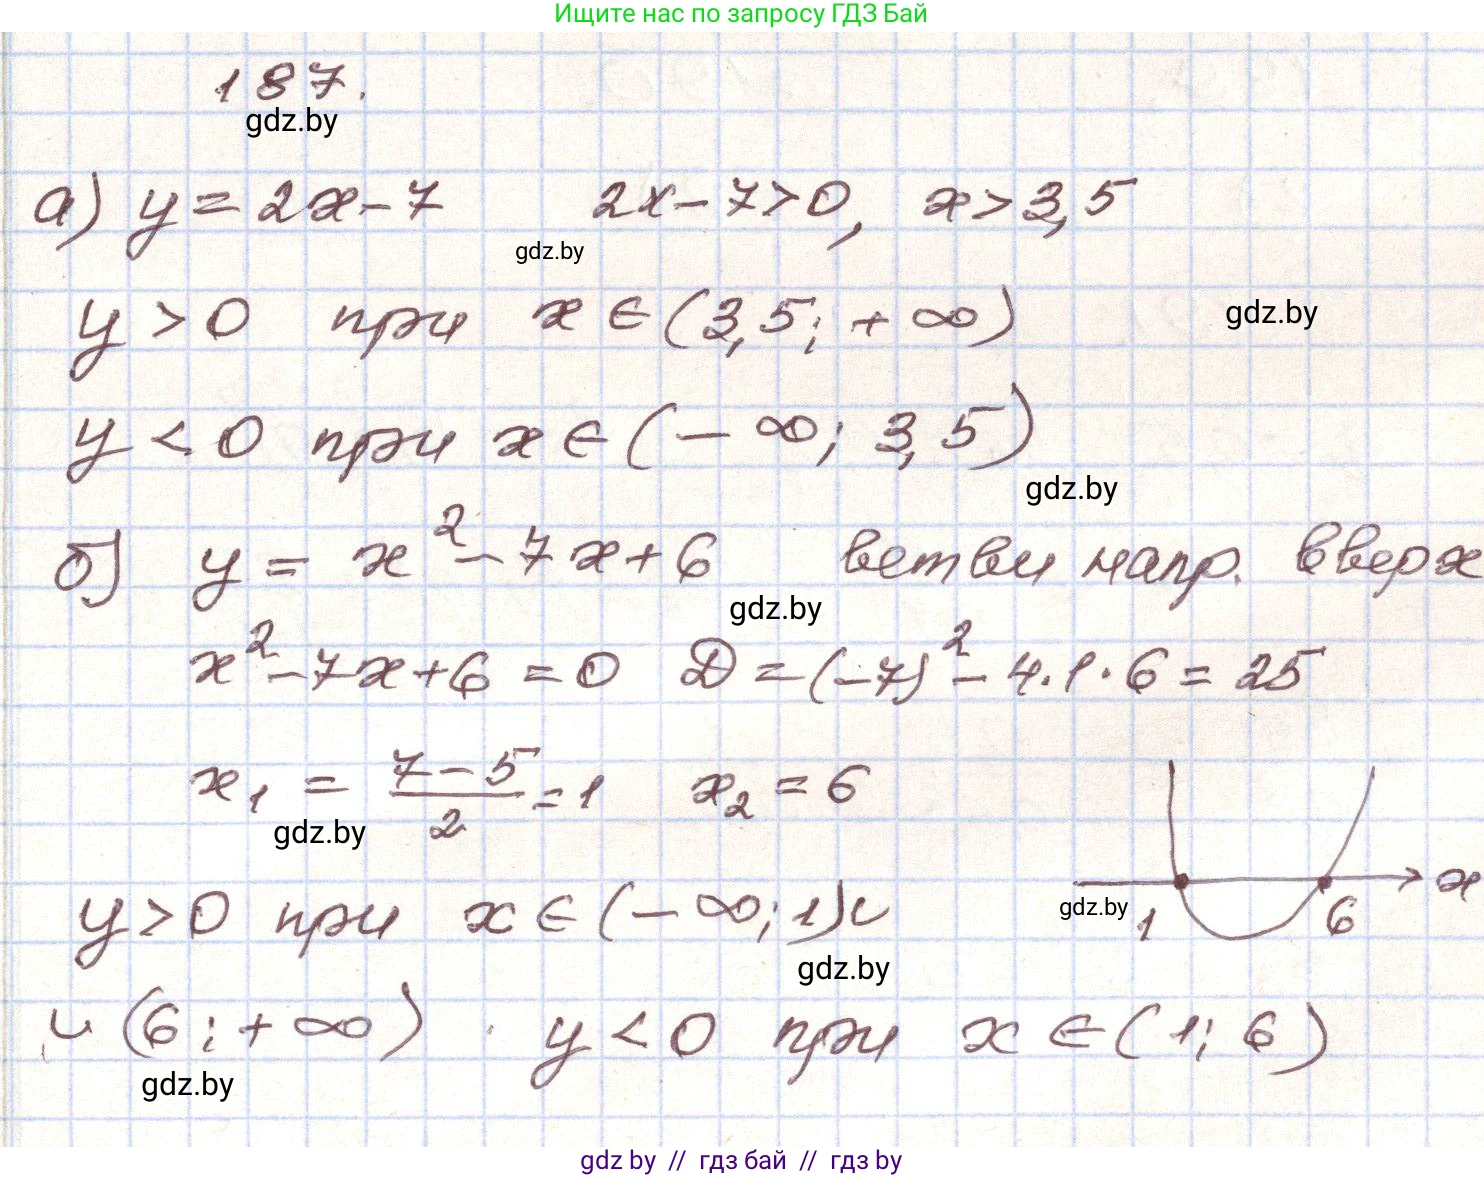 Ищите нас по запросу ГДЗ Бай
187.
gdz.by
а) y = 2x - 7   2x - 7 > 0, x > 3,5
gdz.by
y > 0 при x ∈ (3,5; + ∞)
gdz.by
y < 0 при x ∈ (- ∞; 3,5)
gdz.by
б) y = x² - 7x + 6   ветви напр. вверх
gdz.by
x² - 7x + 6 = 0   D = (-7)² - 4·1·6 = 25
x₁ = (7 - 5)/2 = 1   x₂ = 6
gdz.by
x
gdz.by
1   6
y > 0 при x ∈ (- ∞; 1) ∪
gdz.by
∪ (6; + ∞)   y < 0 при x ∈ (1; 6)
gdz.by
gdz by // гдз бай // гдз by